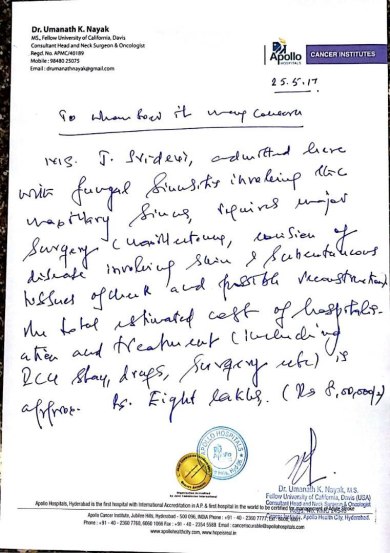 Dr. Umanath K. Nayak
MS., Fellow University of California, Davis
Consultant Head and Neck Surgeon & Oncologist
Regd. No. APMC/46189
Mobile : 98480 25075
Email : drumanathnayak@gmail.com
Apollo
HOSPITALS
CANCER INSTITUTES
25.5.17
To whomsoever it may concern
Ms. J. Sridevi, admitted here
with fungal sinusitis involving the
maxillary sinus, requires major
surgery (maxillectomy, excision of
disease involving skin & subcutaneous
tissues of cheek and possible reconstruction
The total estimated cost of hospitalis-
ation and treatment (including
ICU stay, drugs, surgery etc) is
approx. Rs. Eight Lakhs. (Rs 8,00,000/-)
APOLLO HOSPITALS
Dr. Umanath K. Nayak, M.S.
Fellow University of California, Davis (USA)
Consultant Head and Neck Surgeon & Oncologist
Apollo Hospitals, Hyderabad is the first hospital with International Accreditation in A.P. & first hospital in the world to be certified for management of Acute Stroke
Apollo Cancer Institute, Jubilee Hills, Hyderabad - 500 096, INDIA Phone : +91 - 40 - 2360 7777,
Institute, Apollo Health City, Hyderabad.
Phone : +91 - 40 - 2360 7760, 6666 1066 Fax : +91 - 40 - 2354 5588
www.apollohealthcity.com, www.hopesreal.in